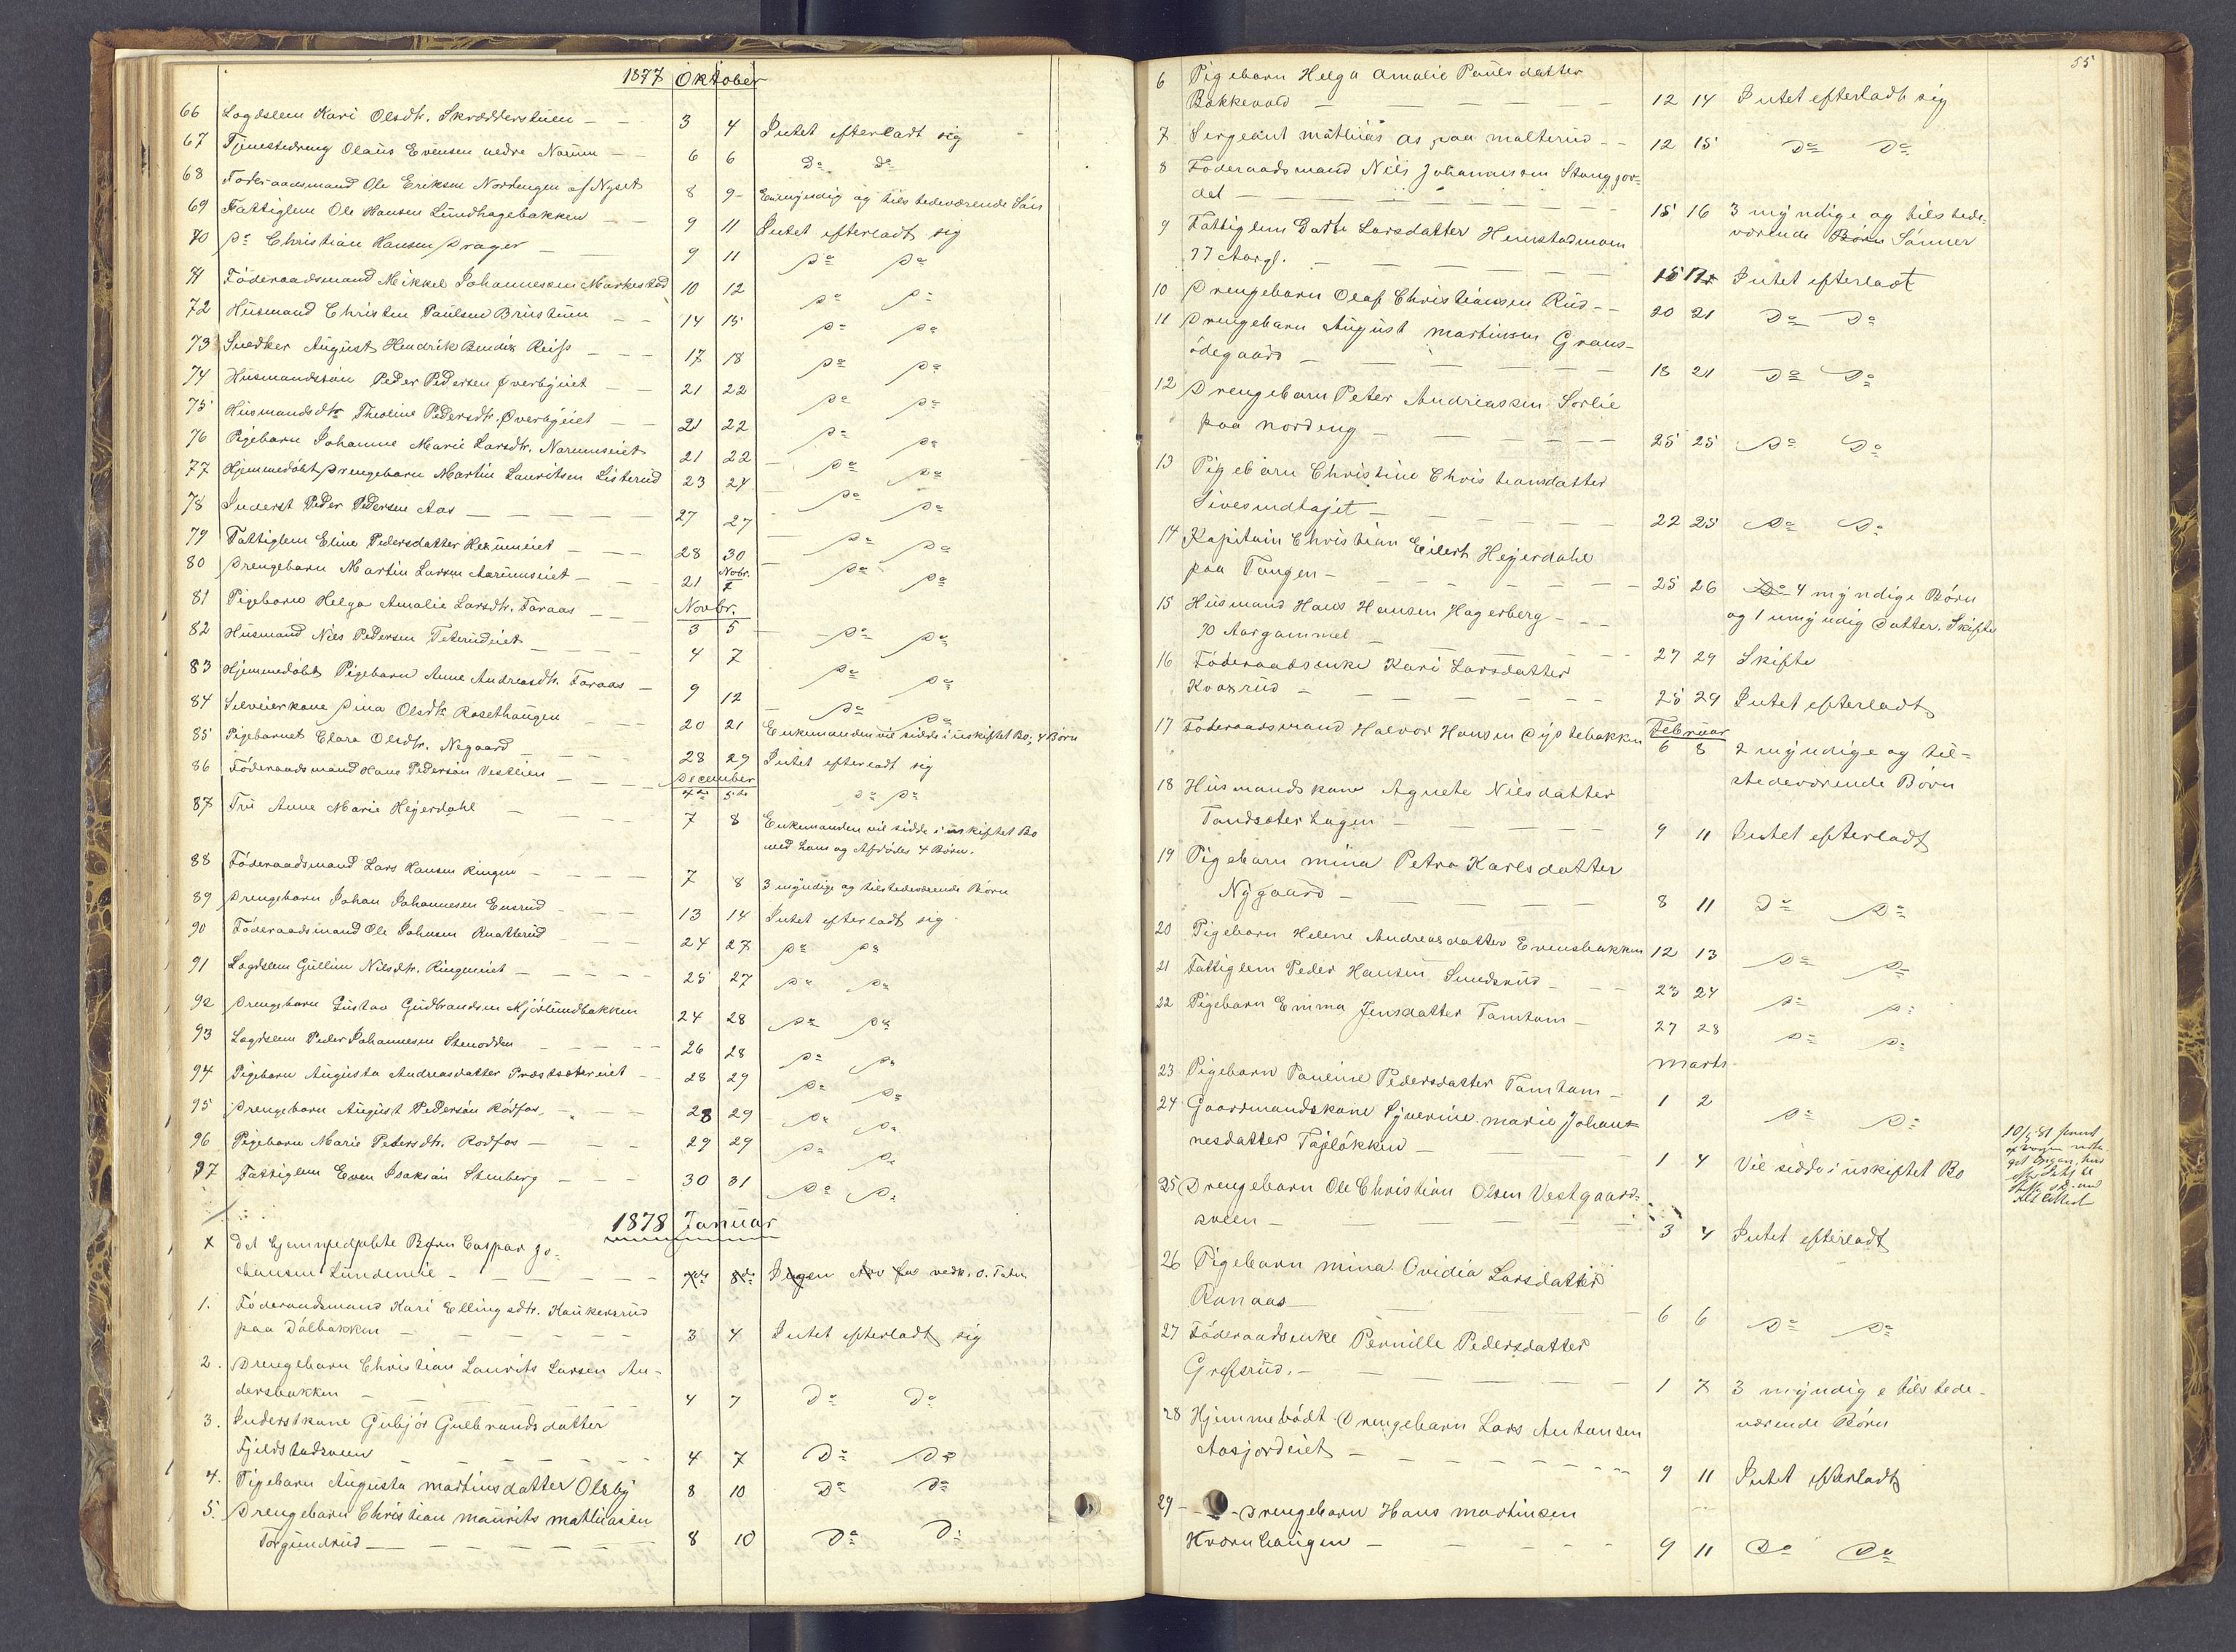 1877 Oktober
66 Lægdslem Kari Olsdtr. Skrædderstuen — 3 4 Intet efterladt sig
67 Tjenestedreng Olaus Evensen nedre Narum — 6 6 Do Do
68 Føderaadsmand Ole Eriksen Nordengen af Nyset 8 9 En myndig og tilstedeværende Søn
69 Fattiglem Ole Hansen Lundhagebakken — 9 11 Intet efterladt sig
70 Do Christian Hansen Prager — 9 11 Do Do
71 Føderaadsmand Mikkel Johannesen Markestad 10 12 Do Do
72 Husmand Christen Paulsen Brustuen — 14 15 Do Do
73 Snedker August Hendrik Bendix Reiss — 17 18 Do Do
74 Husmandssøn Peder Pedersen Øverbyeiet — 21 22 Do Do
75 Husmandsdtr Theoline Pedersdtr. Øverbyeiet — 21 22 Do Do
76 Pigebarn Johanne Marie Larsdtr. Narumseiet 21 22 Do Do
77 Hjemmedøbt Drengebarn Martin Lauritsen Listerud 23 24 Do Do
78 Inderst Peder Pedersen Aas — 27 27 Do Do
79 Fattiglem Eline Pedersdatter — 28 30 Do Do
80 Drengebarn Martin Larsen — 21 Nobr. 1 Do Do
81 Pigebarn Helga Amalie Larsdtr. Faraas — Novbr.
3 5 Do Do
82 Husmand Nils Pedersen Teterudeiet — 4 7 Do Do
83 Hjemmedøbt Pigebarn Anne Andreasdtr. Faraas — 9 12 Do Do
84 Selveierkone Dina Olsdtr Rosethaugen — 20 21 Enkemanden vil sidde i uskiftet Bo, 4 Børn
85 Pigebarnet Clara Olsdtr. Nygaard — 28 29 Intet efterladt sig
86 Føderaadsmand Hans Pedersøn Vestlien — December
4de 5te Do Do
87 Fru Anne Marie Heyerdahl — 7 8 Enkemanden vil sidde i uskiftet Bo
med hans og Afdødes 4 Børn.
88 Føderaadsmand Lars Hansen Ringen — 7 8 3 myndige og tilstedeværende Børn
89 Drengebarn Johan Johannesen Ensrud — 13 14 Intet efterladt sig
90 Føderaadsmand Ole Johnsen Knatterud — 24 27 Do Do
91 Lægdslem Gulline Nilsdtr. Ringeneiet — 25 27 Do Do
92 Drengebarn Gustav Gudbrandsen Mjørlundbakken 24 28 Do Do
93 Lægdslem Peder Johannesen Stenodden — 26 28 Do Do
94 Pigebarn Augusta Andreasdatter Præstsætereiet — 28 29 Do Do
95 Drengebarn August Pedersøn Rødfos — 28 29 Do Do
96 Pigebarn Marie Petersdtr. Rodfos — 29 29 Do Do
97 Fattiglem Even Isaksøn Stenberg — 30 31 Do Do
1878 Januar
x Det hjemmedøbte Barn Caspar Jo-
hansen Lundemie — 7de 8de Ingen Arv
1. Føderaadsmand Kari Ellingsdtr. Haukersrud
paa Dølbakken — 3 4 Intet efterladt sig
2. Drengebarn Christian Laurits Larsen An-
dersbakken — 4 7 Do Do
3. Inderstkone Gubjør Gulbrandsdatter
Fjeldstadsveen — 4 7 Do Do
4. Pigebarn Augusta Martinsdatter Olsby 8 10 Do Do
5. Drengebarn Christian Maurits Mathiasen
Torgundrud — 8 10 Do Do
55
6 Pigebarn Helga Amalie Paulsdatter
Bakkevold — 12 14 Intet efterladt sig
7 Sergeant Mathias As paa Malterud — 12 15 Do Do
8 Føderaadsmand Nils Johannessen Stangjor-
det — 15 16 3 myndige og tilstede-
værende Børn Sønner
9 Fattiglem Darte Larsdatter Hemstadmoen
77 Aargl. — 15 17 Intet efterladt
10 Drengebarn Olaf Christiansen Rud — 20 21 Do Do
11 Drengebarn August Martinsen Grans-
ødegaard — 18 21 Do Do
12 Drengebarn Peter Andreassen Sørlie
paa Nordeng — 25 25 Do Do
13 Pigebarn Christine Christiansdatter
Sivesindtajet — 22 25 Do Do
14 Kapitain Christian Eilert Heyerdahl
paa Tangen — 25 26 Do 4 myndige Børn
og 1 umyndig Datter. Skifte
15 Husmand Hans Hansen Hagerberg —
70 Aar gammel — 27 29 Skifte
16 Føderaadsenke Kari Larsdatter
Kvaxrud — 25 29 Intet efterladt
17 Føderaadsmand Halvor Hansen Dystebakken Februar
6 8 2 myndige og til-
stedeværende Børn
18 Husmandskone Agnete Nilsdatter
Tandsæterhagen — 9 11 Intet efterladt
19 Pigebarn Mina Petra Karlsdatter
Nygaard — 8 11 Do Do
20 Pigebarn Helene Andreasdatter Evensbakken 12 13 Do Do
21 Fattiglem Peder Hansen Sundsrud — 23 24 Do Do
22 Pigebarn Emma Jensdatter Tamtam — 27 28 Do Do
Marts
23 Pigebarn Pauline Pedersdatter Tamtam — 1 2 Do Do
24 Gaardmandskone Syverine Marie Johan-
nesdatter Tajeløkken — 1 4 Vil sidde i uskiftet Bo
25 Drengebarn Ole Christian Olsen Vestgaard-
sveen — 3 4 Intet efterladt
26 Pigebarn Mina Ovidia Larsdatter
Ronaas — 6 6 Do Do
27 Føderaadsenke Pernille Pedersdatter
Grefsrud. — 1 7 3 myndige tilstede-
værende Børn
28 Hjemmedødt Drengebarn Lars Antonsen
Aasjordeiet — 9 11 Intet efterladt
29 — Drengebarn Hans Martinsen
Kvernhaugen — 9 11 Do Do